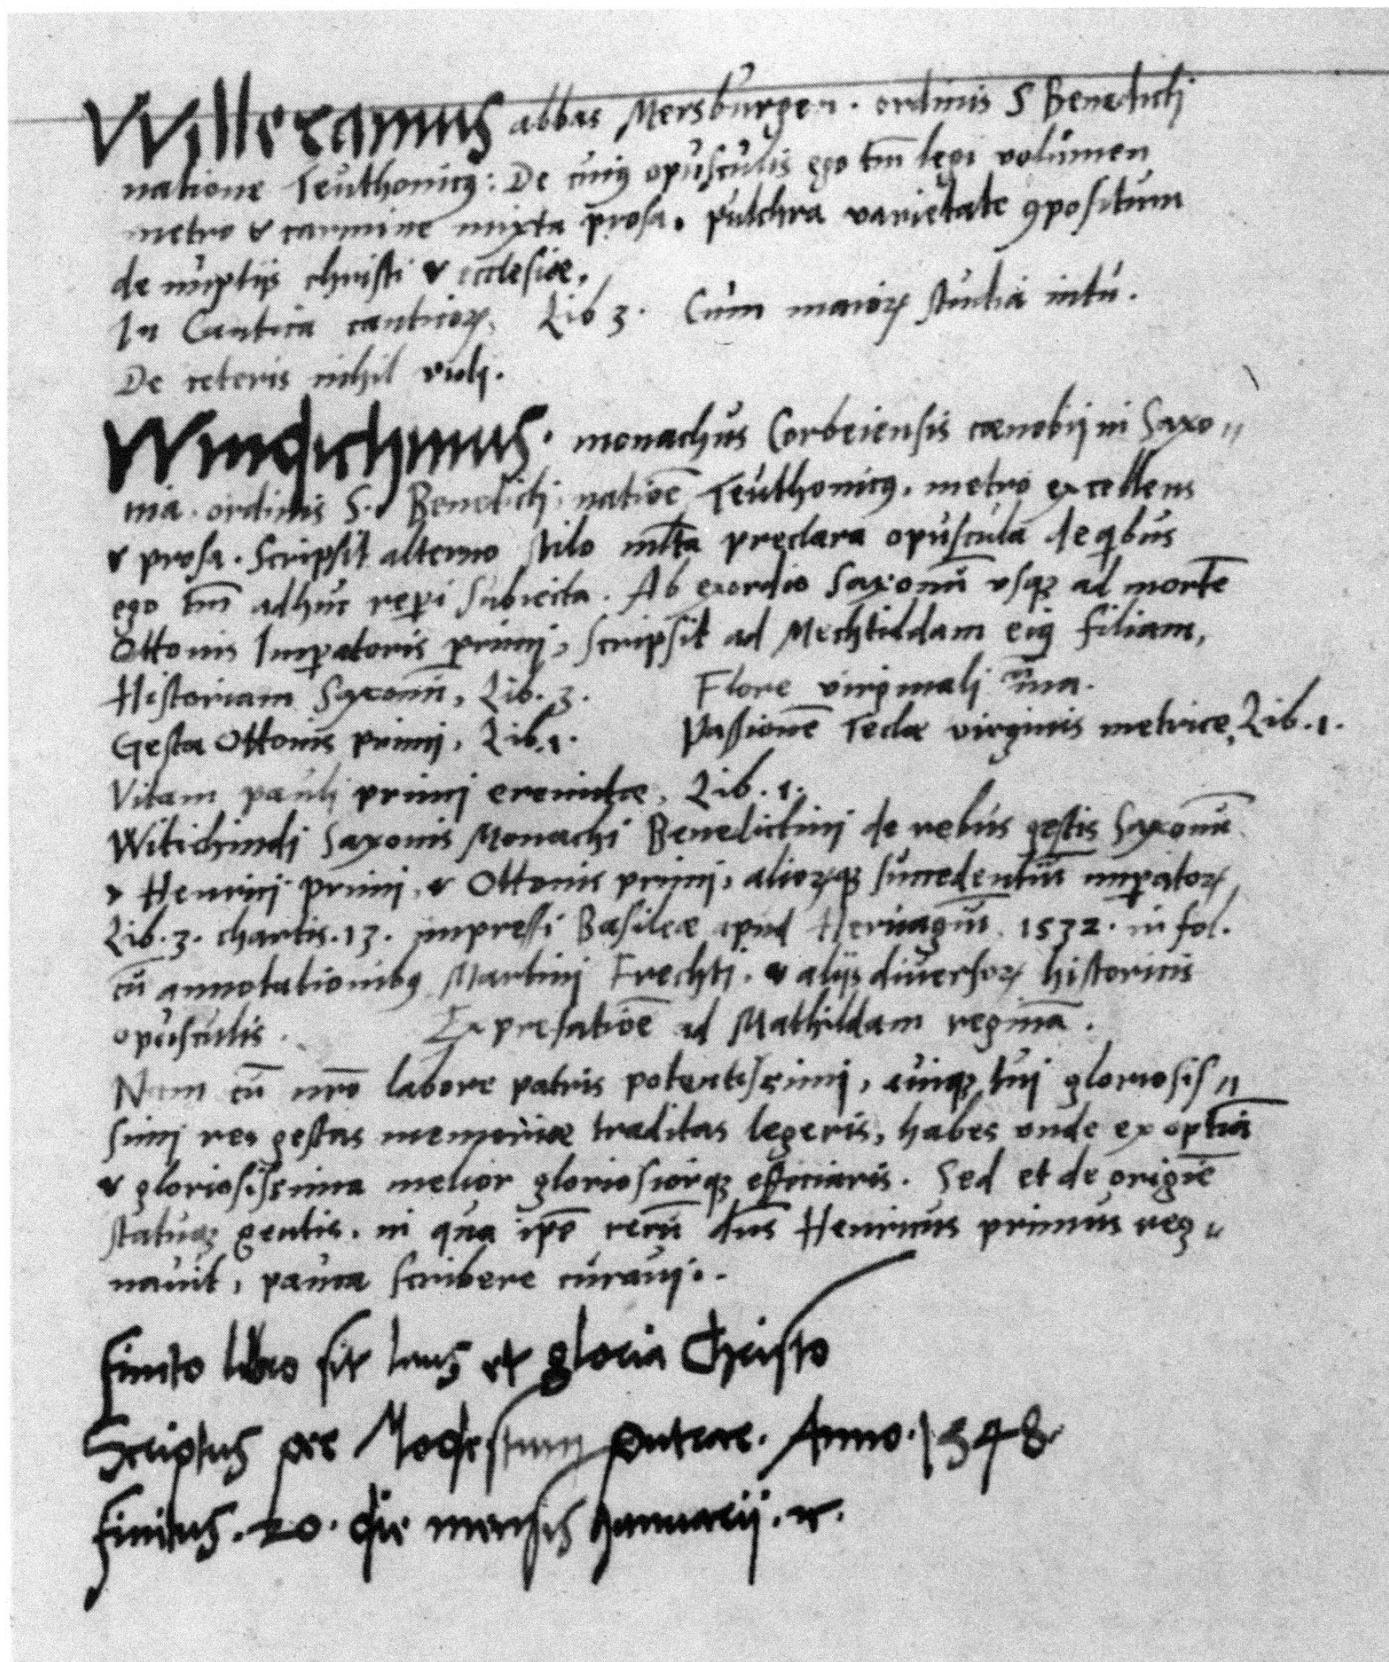 Willeramus abbas Mersburgen. ordinis S Benedicti
natione Teuthonicꝰ: De cuiꝰ opusculis ego tm̄ legi volumen
metro & carmine mixta prosa, pulchra varietate ꝯpositum
de nuptijs christi & ecclesiæ,
In Cantica canticoꝝ, Lib 3. Cum maioꝝ studia intu.
De ceteris nihil vidj.
Windichinus. monachus Corbeiensis cœnobij in Saxo〃
nia. ordinis S. Benedicti, natiōe Teuthonicꝰ, metro excellens
& prosa. Scripsit alterno stilo ml̄ta preclara opuscula de qibus
ego tm̄ adhuc reꝑi subiecta. Ab exordio Saxonū vsqꝫ ad mortē
Ottonis Imꝑatoris primj, scripsit ad Mechtildam eiꝰ filiam,
Historiam Saxonū, Lib. 3. Flore virginalj
Gesta Ottonis primj, Lib. 1. Passionē Teclæ virginis metrice, Lib. 1.
Vitam paulj primj eremitæ, Lib. 1.
Witichindj Saxonis Monachi Benedictinj de rebus gestis Saxonū
& Henricj primj, & Ottonis primj, alioꝝqꝫ succedentiū imꝑatoꝝ,
Lib. 3. chartis. 13. impressi Basileæ apud Heruagiū. 1532. in fol.
cū annotationibꝰ Martinj Frechti. & alijs diuersoꝝ historicis
opusculis. Ex prefatiōe ad Mathildam reginā.
Nam cū nr̄o labore patris potentissimj, auiqꝫ tuj gloriosis〃
simj res gestas memoriæ traditas legeris, habes vnde ex optiā
& gloriosissima melior gloriosiorqꝫ efficiaris. Sed et de origiē
statuqꝫ gentis, in qua ip̄e rerū dn̄s Henricus primus reg〃
nauit, pauca scribere curauj.
finito libro sit laus et gloria Christo
Scriptus per Modestum puterer. Anno. 1548.
finitus. 20. die mensis Januarij. &.